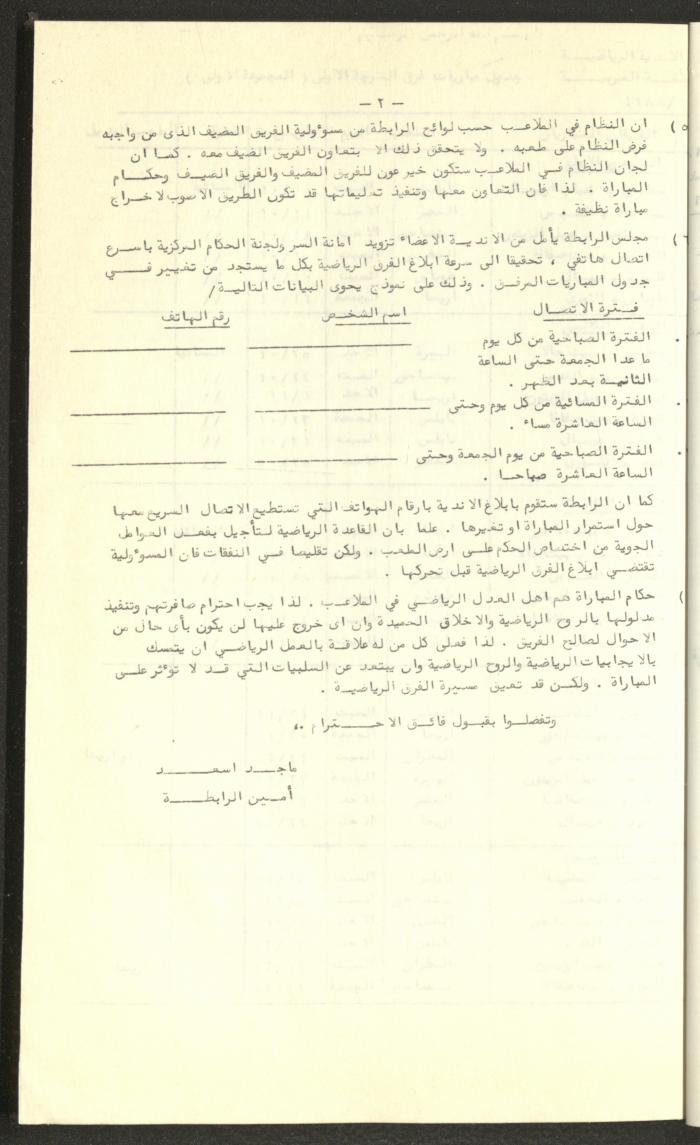 - ٢ -
٥) ان النظام في الملاعب حسب لوائح الرابطة من مسوؤلية الفريق المضيف الذى من واجبه
فرض النظام على ملعبه . ولا يتحقق ذلك الا بتعاون الفريق الضيف معه . كما ان
لجان النظام في الملاعب ستكون خير عون للفريق المضيف والفريق الضيف وحكام
المباراة . لذا فان التعاون معها وتنفيذ تعليماتها قد تكون الطريق الاصوب لاخراج
مباراة نظيفة .
٦) مجلس الرابطة يأمل من الاندية الاعضاء تزويد امانة السر ولجنة الحكام المركزية باسرع
اتصال هاتفي ، تحقيقا الى سرعة ابلاغ الفرق الرياضية بكل ما يستجد من تغيير في
جدول المباريات المرفق . وذلك على نموذج يحوى البيانات التالية /
فترة الاتصال اسم الشخص رقم الهاتف
. الفترة الصباحية من كل يوم
ما عدا الجمعة حتى الساعة
الثانية بعد الظهر .
. الفترة المسائية من كل يوم وحتى
الساعة العاشرة مساء .
. الفترة الصباحية من يوم الجمعة وحتى
الساعة العاشرة صباحا .
كما ان الرابطة ستقوم بابلاغ الاندية بارقام الهواتف التي تستطيع الاتصال السريع معها
حول استمرار المباراة او تغيرها . علما بان القاعدة الرياضية لتأجيل بفعل العوامل
الجوية من اختصاص الحكم على ارض الملعب . ولكن تقليصا في النفقات فان المسوؤلية
تقتضي ابلاغ الفرق الرياضية قبل تحركها .
) حكام المباراة هم اهل العدل الرياضي في الملاعب . لذا يجب احترام صافرتهم وتنفيذ
مدلولها بالروح الرياضية والاخلاق الحميدة وان اى خروج عليها لن يكون بأى حال من
الاحوال لصالح الفريق . لذا فعلى كل من له علاقة بالعمل الرياضي ان يتمسك
بالايجابيات الرياضية والروح الرياضية وان يبتعد عن السلبيات التي قد لا توءثر على
المباراة . ولكن قد تعيق مسيرة الفرق الرياضية .
وتفضلوا بقبول فائق الاحترام ،،
ماجد اسعد
أمين الرابطة